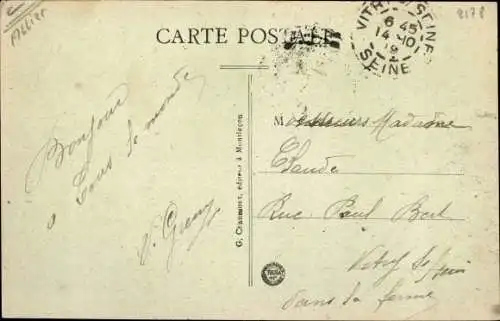 Allier
2178
CARTE POSTALE
VITRY S/ SEINE
6 45
14 -10
19
SEINE
Bonjour
a Tous le monde
V.
G. Chaumont, éditeur à Montluçon
Messieurs Madame
Claude
Rue Paul Bert
Vitry s/ Seine
dans la ferme